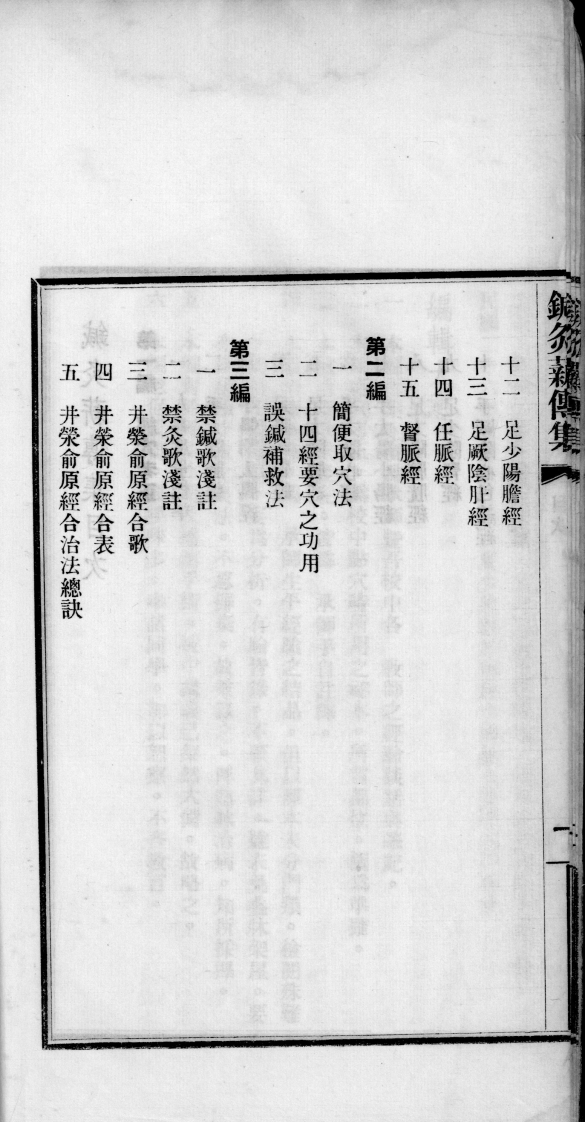 鍼灸薪傳集
十二　足少陽膽經
十三　足厥陰肝經
十四　任脈經
十五　督脈經
第二編
一　簡便取穴法
二　十四經要穴之功用
三　誤鍼補救法
第三編
一　禁鍼歌淺註
二　禁灸歌淺註
三　井滎俞原經合歌
四　井滎俞原經合表
五　井滎俞原經合治法總訣